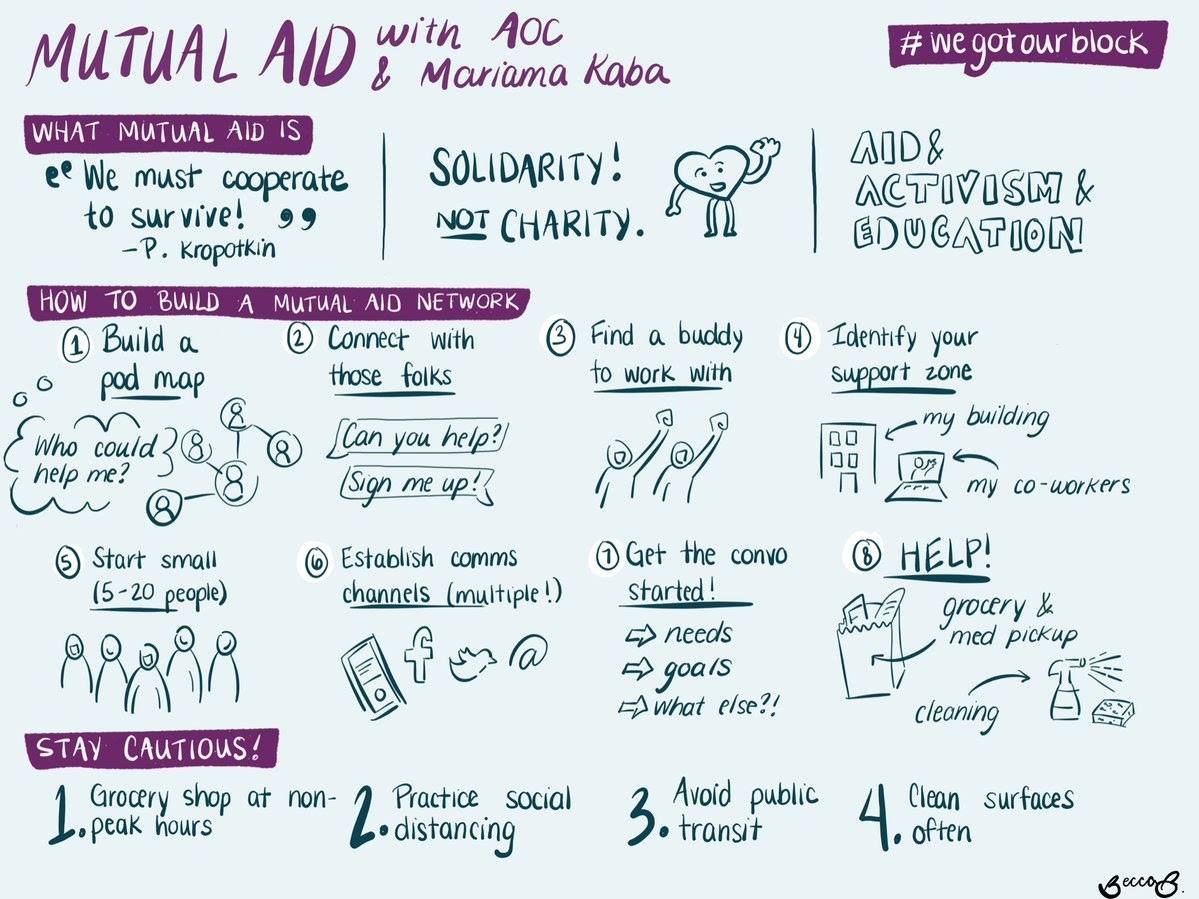 MUTUAL AID with AOC
& Mariama Kaba
#wegotourblock
WHAT MUTUAL AID IS
"We must cooperate
to survive!"
-P. Kropotkin
SOLIDARITY!
NOT CHARITY.
AID &
ACTIVISM &
EDUCATION!
HOW TO BUILD A MUTUAL AID NETWORK
1 Build a
pod map
Who could
help me?
2 Connect with
those folks
Can you help?
Sign me up!
3 Find a buddy
to work with
4 Identify your
support zone
my building
my co-workers
5 Start small
(5-20 people)
6 Establish comms
channels (multiple!)
f
@
7 Get the convo
started!
⇨ needs
⇨ goals
⇨ what else?!
8 HELP!
grocery &
med pickup
cleaning
STAY CAUTIOUS!
1. Grocery shop at non-
peak hours
2. Practice social
distancing
3. Avoid public
transit
4. Clean surfaces
often
BeccaB.